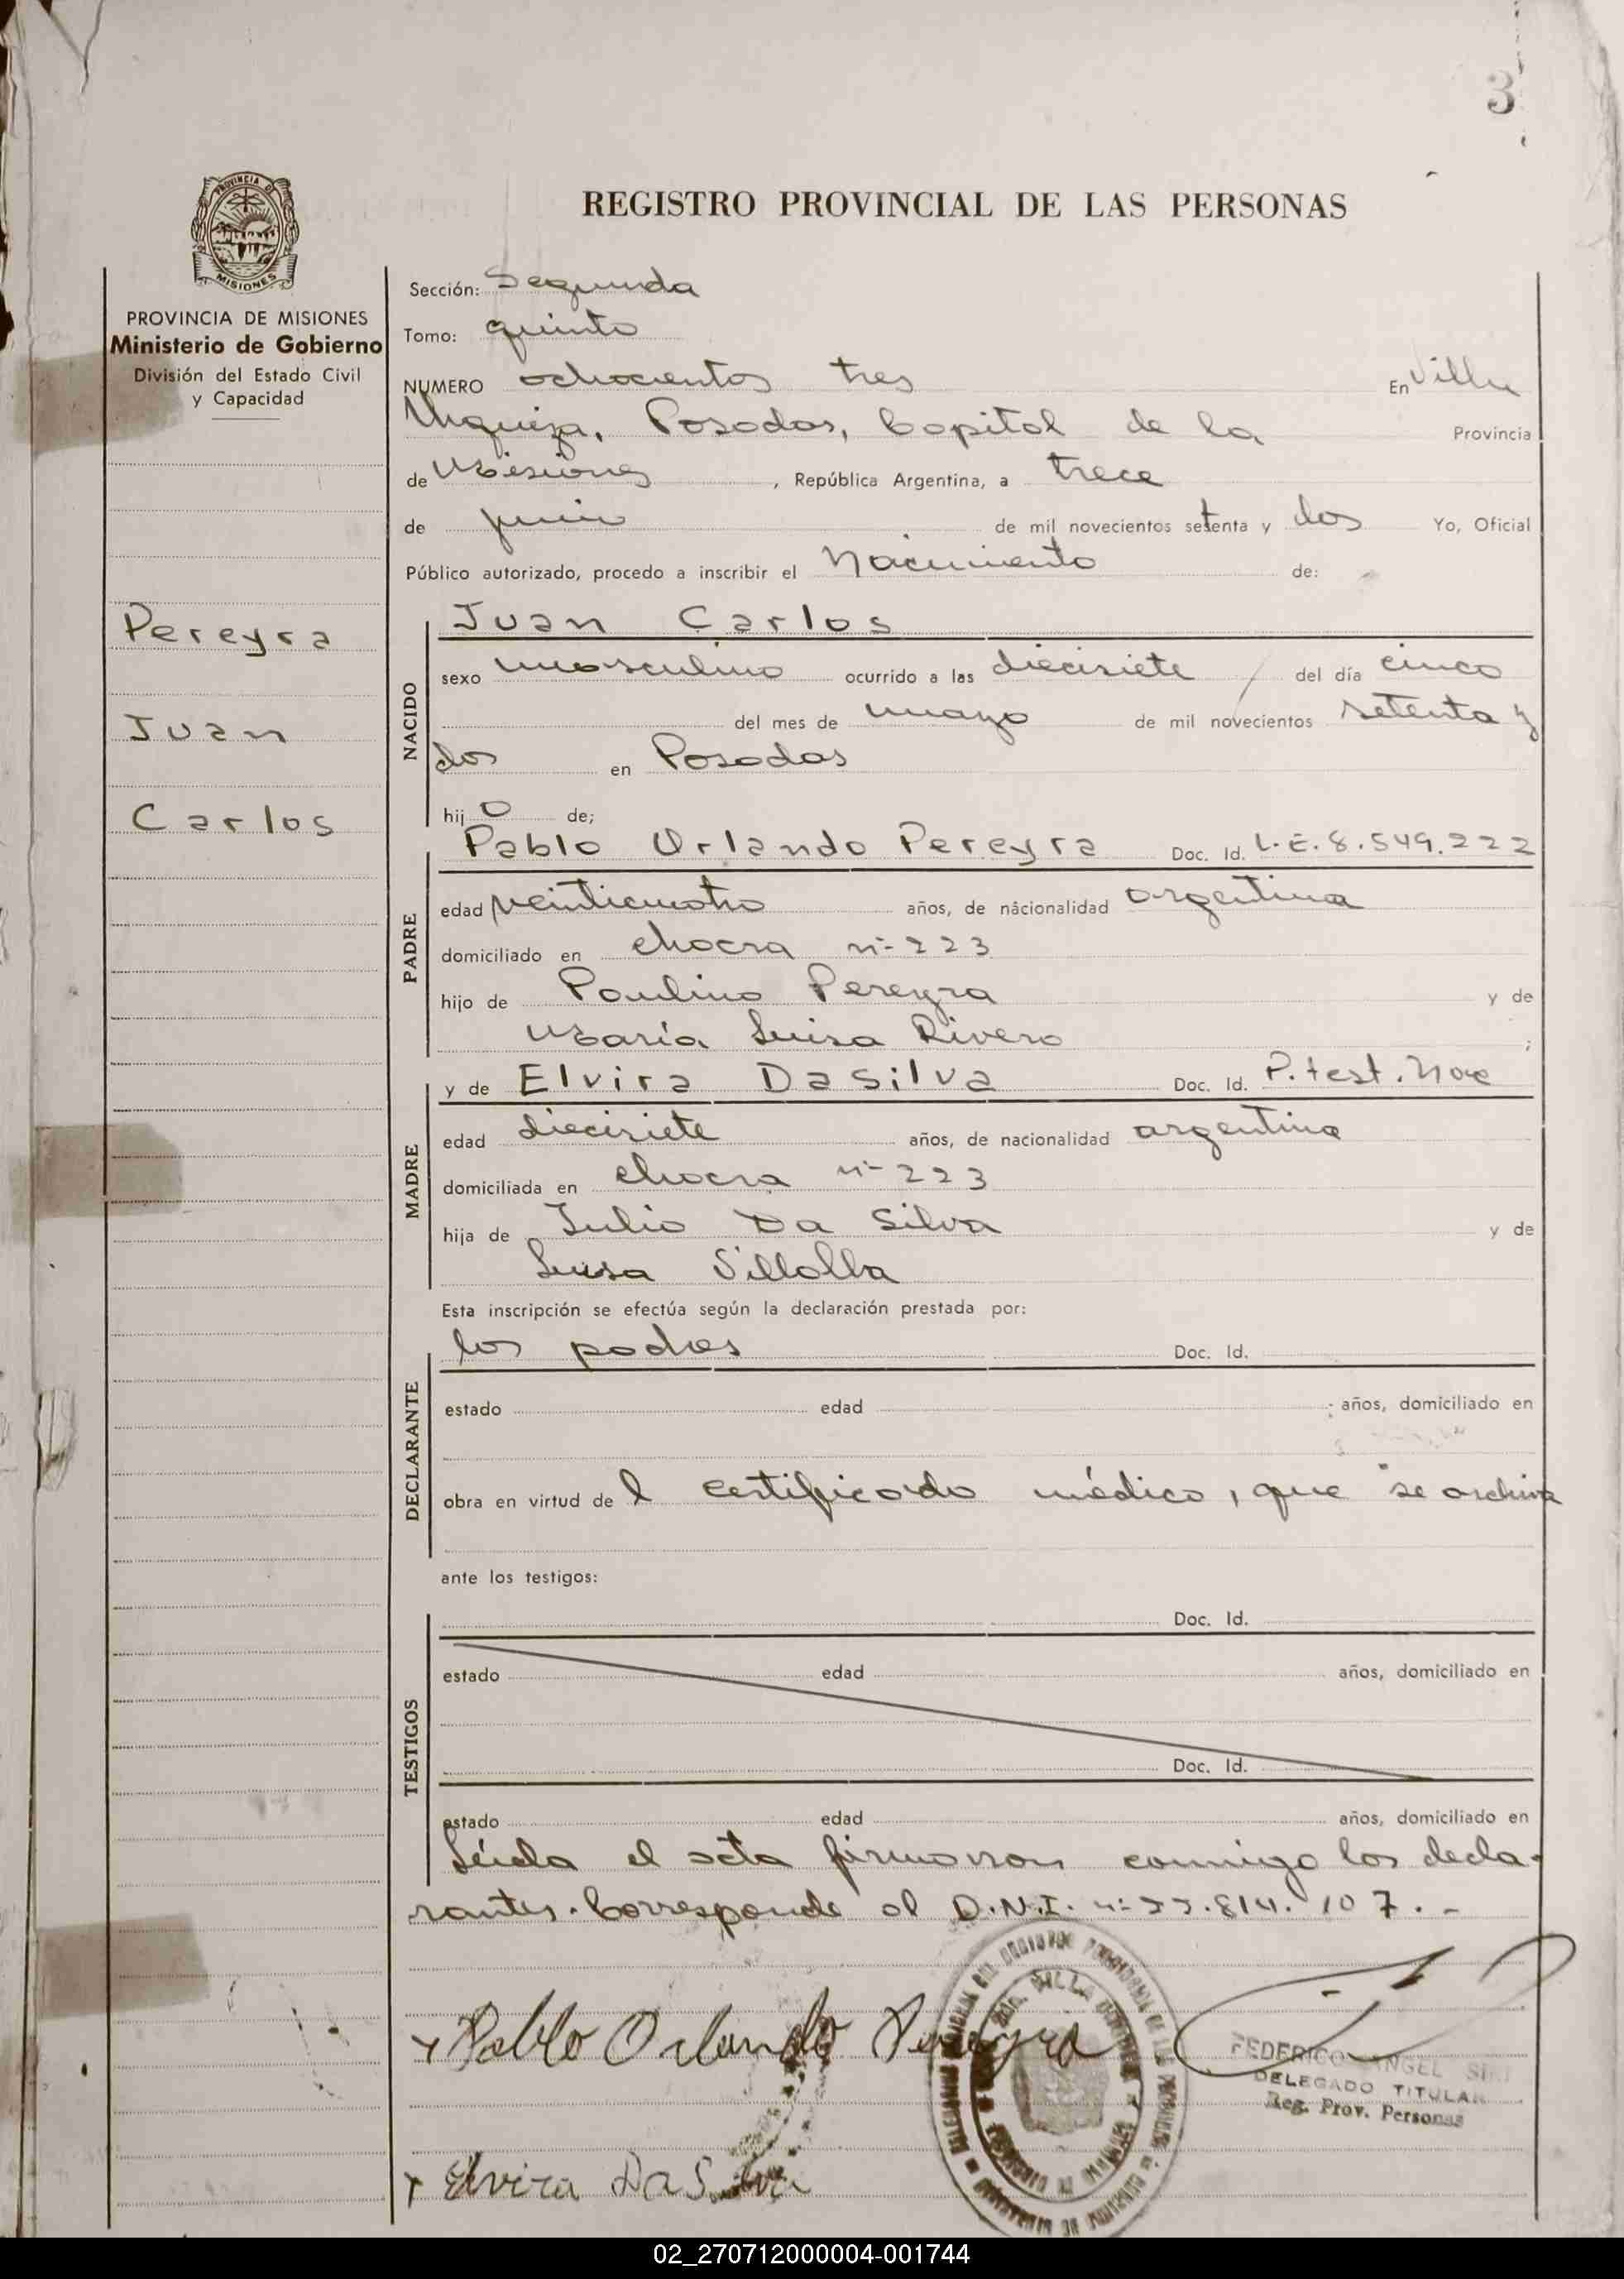 3
REGISTRO PROVINCIAL DE LAS PERSONAS
PROVINCIA DE
MISIONES
PROVINCIA DE MISIONES
Ministerio de Gobierno
División del Estado Civil
y Capacidad
Pereyra
Juan
Carlos
Sección: Segunda
Tomo: quinto
NUMERO ochocientos tres En Villa
Urquiza, Posadas, Capital de la Provincia
de Misiones, República Argentina, a trece
de junio de mil novecientos setenta y dos Yo, Oficial
Público autorizado, procedo a inscribir el Nacimiento de:
NACIDO
Juan Carlos
sexo masculino ocurrido a las diecisiete / del día cinco
del mes de mayo de mil novecientos setenta y
dos en Posadas
hijo de;
PADRE
Pablo Orlando Pereyra Doc. Id. L.E.8.549.222
edad veinticuatro años, de nácionalidad argentina
domiciliado en chacra nº 223
hijo de Paulino Pereyra y de
María Luisa Rivero ;
MADRE
y de Elvira DaSilva Doc. Id. P.test.
edad diecisiete años, de nacionalidad argentina
domiciliada en chacra nº 223
hija de Julio Da Silva y de
Luisa
Esta inscripción se efectúa según la declaración prestada por:
DECLARANTE
los padres Doc. Id.
estado edad años, domiciliado en
obra en virtud del certificado médico, que se archiva
ante los testigos:
TESTIGOS
Doc. Id.
estado edad años, domiciliado en
Doc. Id.
estado edad años, domiciliado en
Leída el acta firmaron conmigo los decla-
rantes. Corresponde al D.N.I. nº 814.107.-
Pablo Orlando Pereyra
FEDERICO ANGEL
DELEGADO TITULAR
Reg. Prov. Personas
Elvira DaSilva
02_270712000004-001744